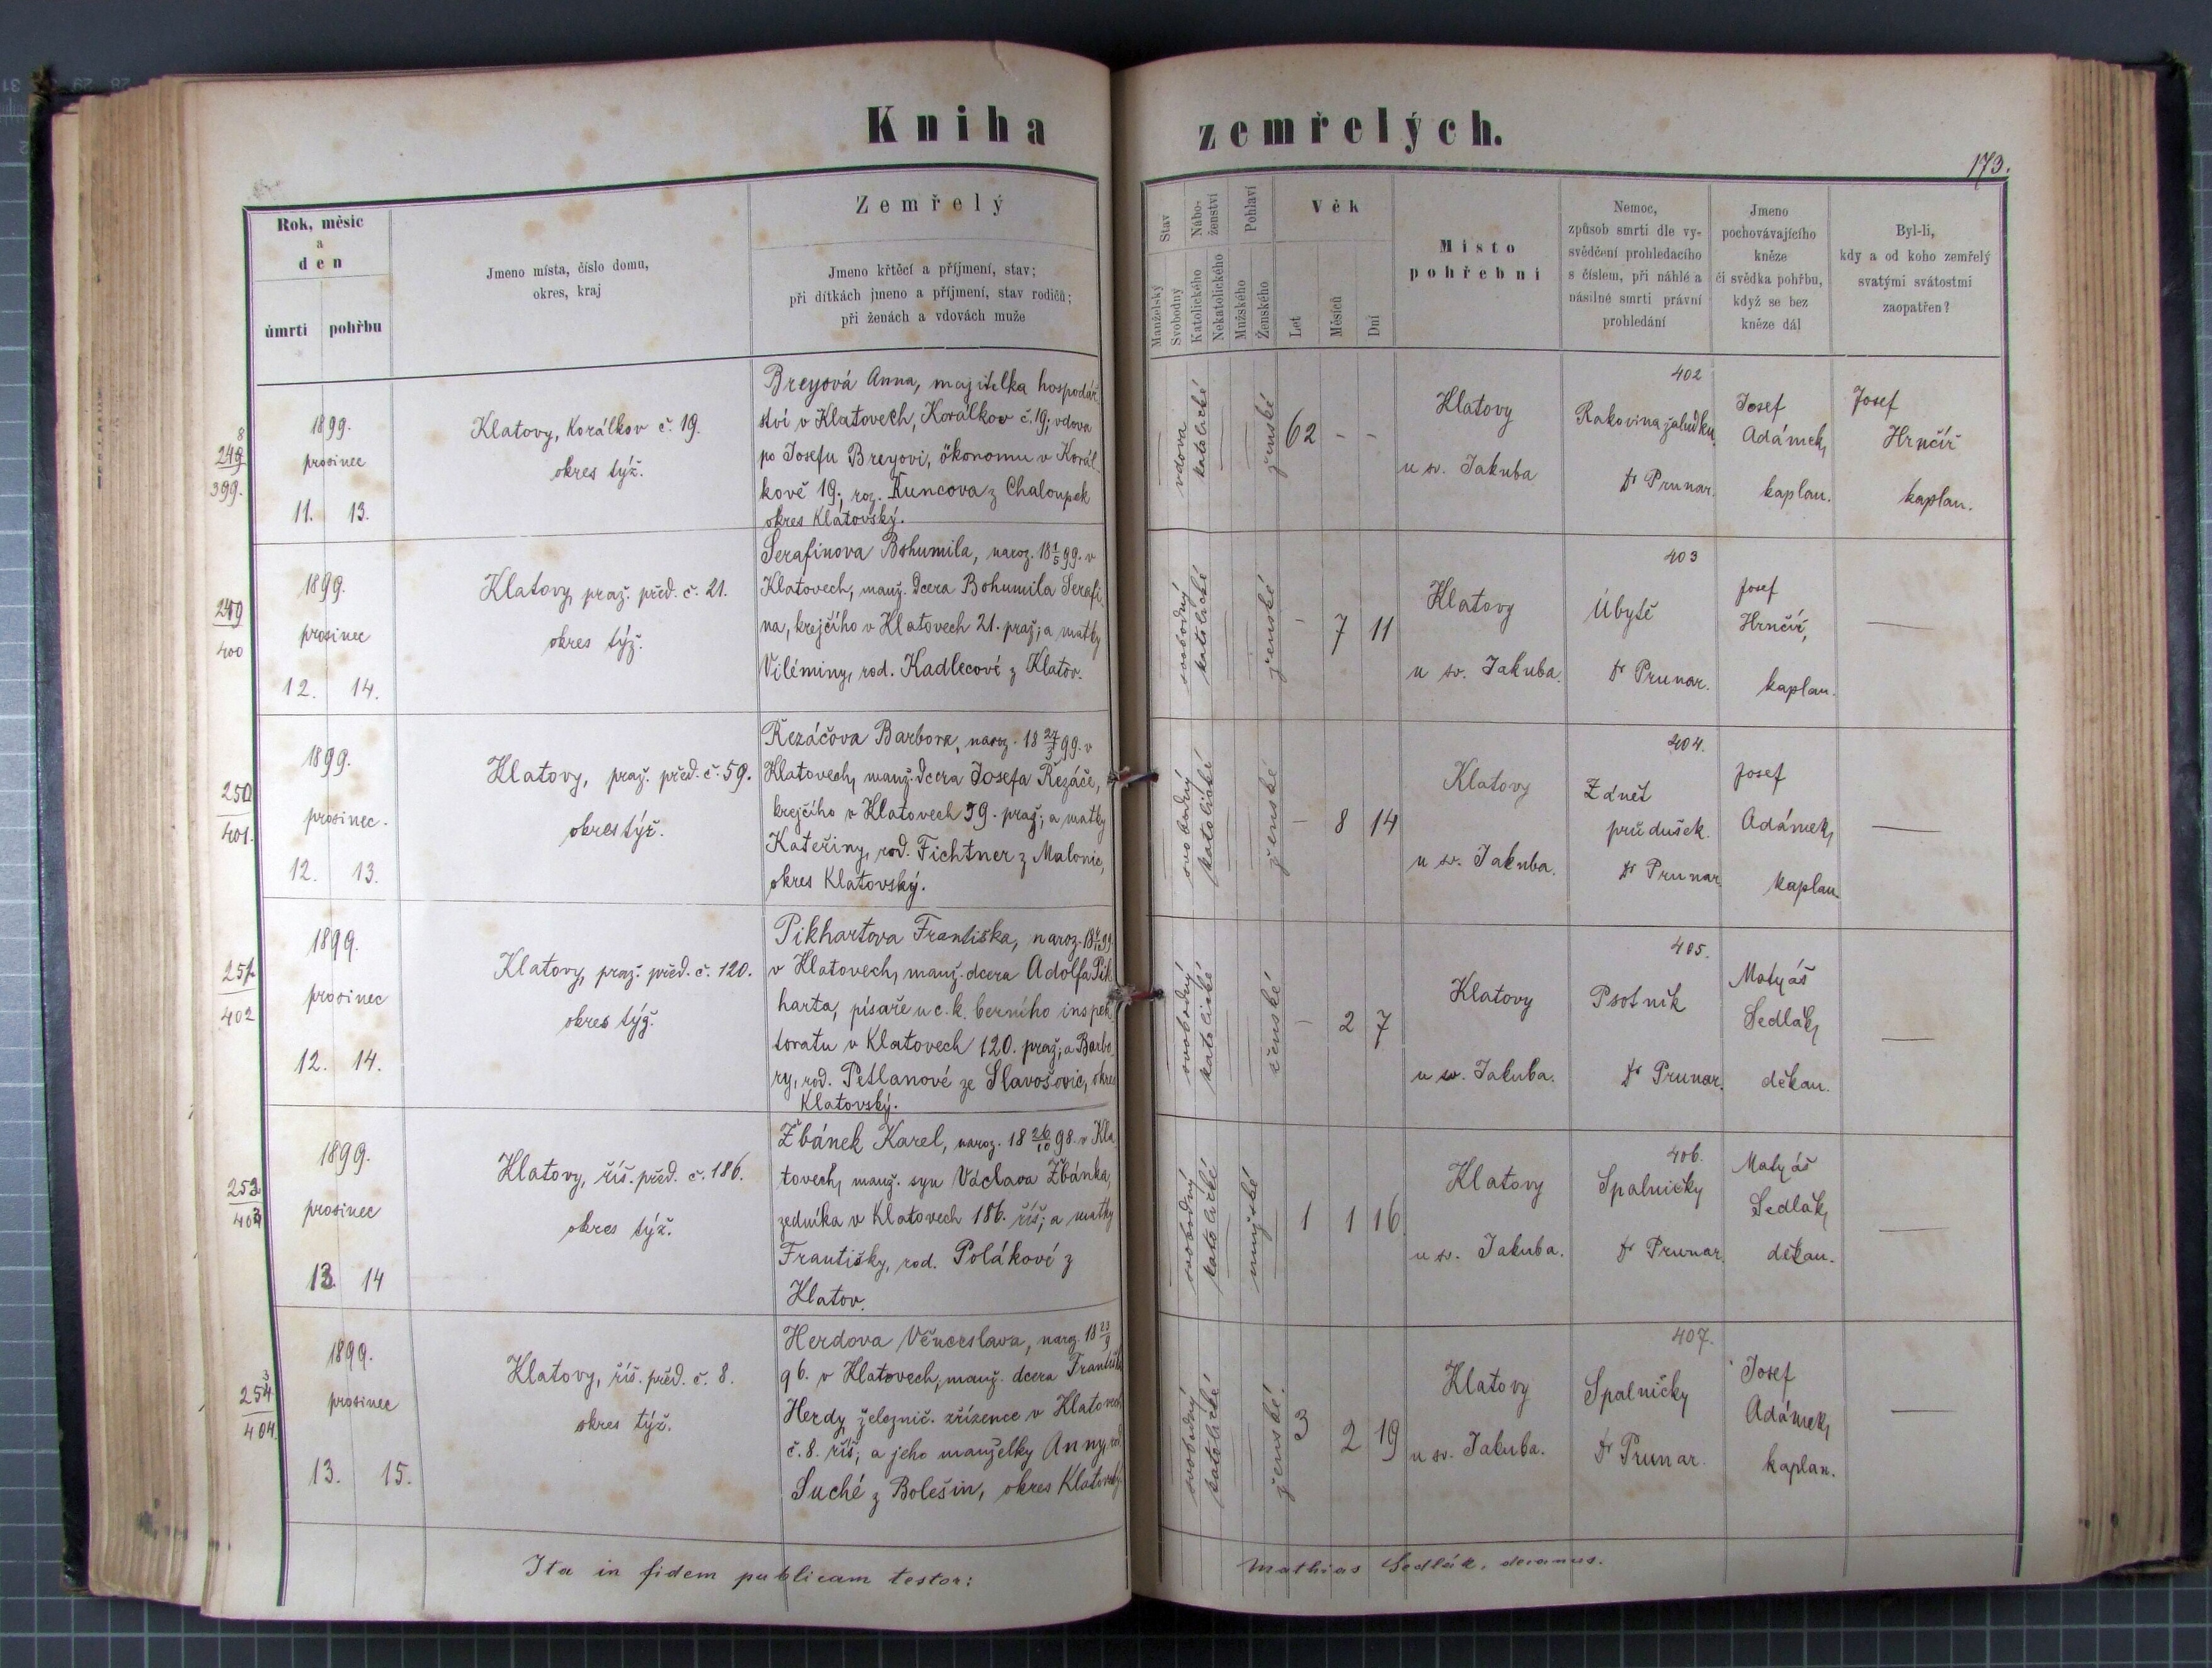 Kniha zemřelých.
173.
Rok, měsíc
a
den
úmrtí pohřbu
Jmeno místa, číslo domu,
okres, kraj
Zemřelý
Jmeno křtěcí a příjmení, stav;
při dítkách jmeno a příjmení, stav rodičů;
při ženách a vdovách muže
Stav
Manželský
Svobodný
Nábo-
ženství
Katolického
Nekatolického
Pohlaví
Mužského
Ženského
Věk
Let
Měsíců
Dní
Místo
pohřební
Nemoc,
způsob smrti dle vy-
svědčení prohledacího
s číslem, při náhlé a
násilné smrti právní
prohledání
Jmeno
pochovávajícího
kněze
či svědka pohřbu,
když se bez
kněze dál
Byl-li,
kdy a od koho zemřelý
svatými svátostmi
zaopatřen?
399.
1899.
prosinec
11. 13.
Klatovy, Korálkov č. 19.
okres týž.
Breyová Anna, majitelka hospodář
ství v Klatovech, Korálkov č. 19; vdova
po Josefu Breyovi, ökonomu v Korál
kově 19; roz. Kuncova z Chaloupek
okres Klatovský.
vdova
katolické
ženské
62 - -
Klatovy
u sv. Jakuba
402
Rakovina žaludku.
Dr Prunar.
Josef
Adámek,
kaplan.
Josef
Hrnčíř
kaplan.
249
400
1899.
prosinec
12. 14.
Klatovy, praž. před. č. 21.
okres týž.
Serafinova Bohumila, naroz. 18 1/5 99. v
Klatovech, manž. dcera Bohumila Serafi
na, krejčího v Klatovech 21. praž; a matky
Viléminy, rod. Kadlecové z Klatov.
svobodný
katolické
ženské
- 7 11
Klatovy
u sv. Jakuba.
403
Úbytě
Dr Prunar.
Josef
Hrnčíř,
kaplan.
250
401.
1899.
prosinec.
12. 13.
Klatovy, praž. před. č. 59.
okres týž.
Řezáčova Barbora, naroz. 18 24/3 99. v
Klatovech, manž. dcera Josefa Řezáče,
krejčího v Klatovech 59. praž; a matky
Kateřiny, rod. Fichtner z Malonic,
okres Klatovský.
svobodný
katolické
ženské
- 8 14
Klatovy
u sv. Jakuba.
404.
Zánět
průdušek.
Dr Prunar
Josef
Adámek,
kaplan
251
402
1899.
prosinec
12. 14.
Klatovy, praž. před. č. 120.
okres týž.
Pikhartova Františka, naroz.
v Klatovech, manž. dcera Adolfa Pik
harta, písaře u c. k. berního inspek
torátu v Klatovech 120. praž; a Barbo
ry, rod. Petlanové ze Slavošovic, okres
Klatovský.
svobodný
katolické
ženské
- 2 7
Klatovy
u sv. Jakuba.
405.
Psotník
Dr Prunar.
Matyáš
Sedlák,
děkan.
1899.
prosinec
13. 14
Klatovy, říš. před. č. 186.
okres týž.
Žbánek Karel, naroz. 18 26/10 98. v Kla
tovech, manž. syn Václava Žbánka,
zedníka v Klatovech 186. říš; a matky
Františky, rod. Polákové z
Klatov.
svobodný
katolické
mužské
1 1 16
Klatovy
u sv. Jakuba.
406.
Spalničky
Dr Prunar.
Matyáš
Sedlák,
děkan.
404.
1899.
prosinec
13. 15.
Klatovy, říš. před. č. 8.
okres týž.
Herdova Věnceslava, naroz. 18 23/9
96. v Klatovech, manž. dcera Františka
Herdy, železnič. zřízence v Klatovech
č. 8. říš; a jeho manželky Anny, rod.
Suché z Bolešin, okres Klatovský.
svobodný
katolické
ženské.
3 2 19
Klatovy
u sv. Jakuba.
407.
Spalničky
Dr Prunar.
Josef
Adámek,
kaplan.
Ita in fidem publicam testor: Mathias Sedlák, decanus.